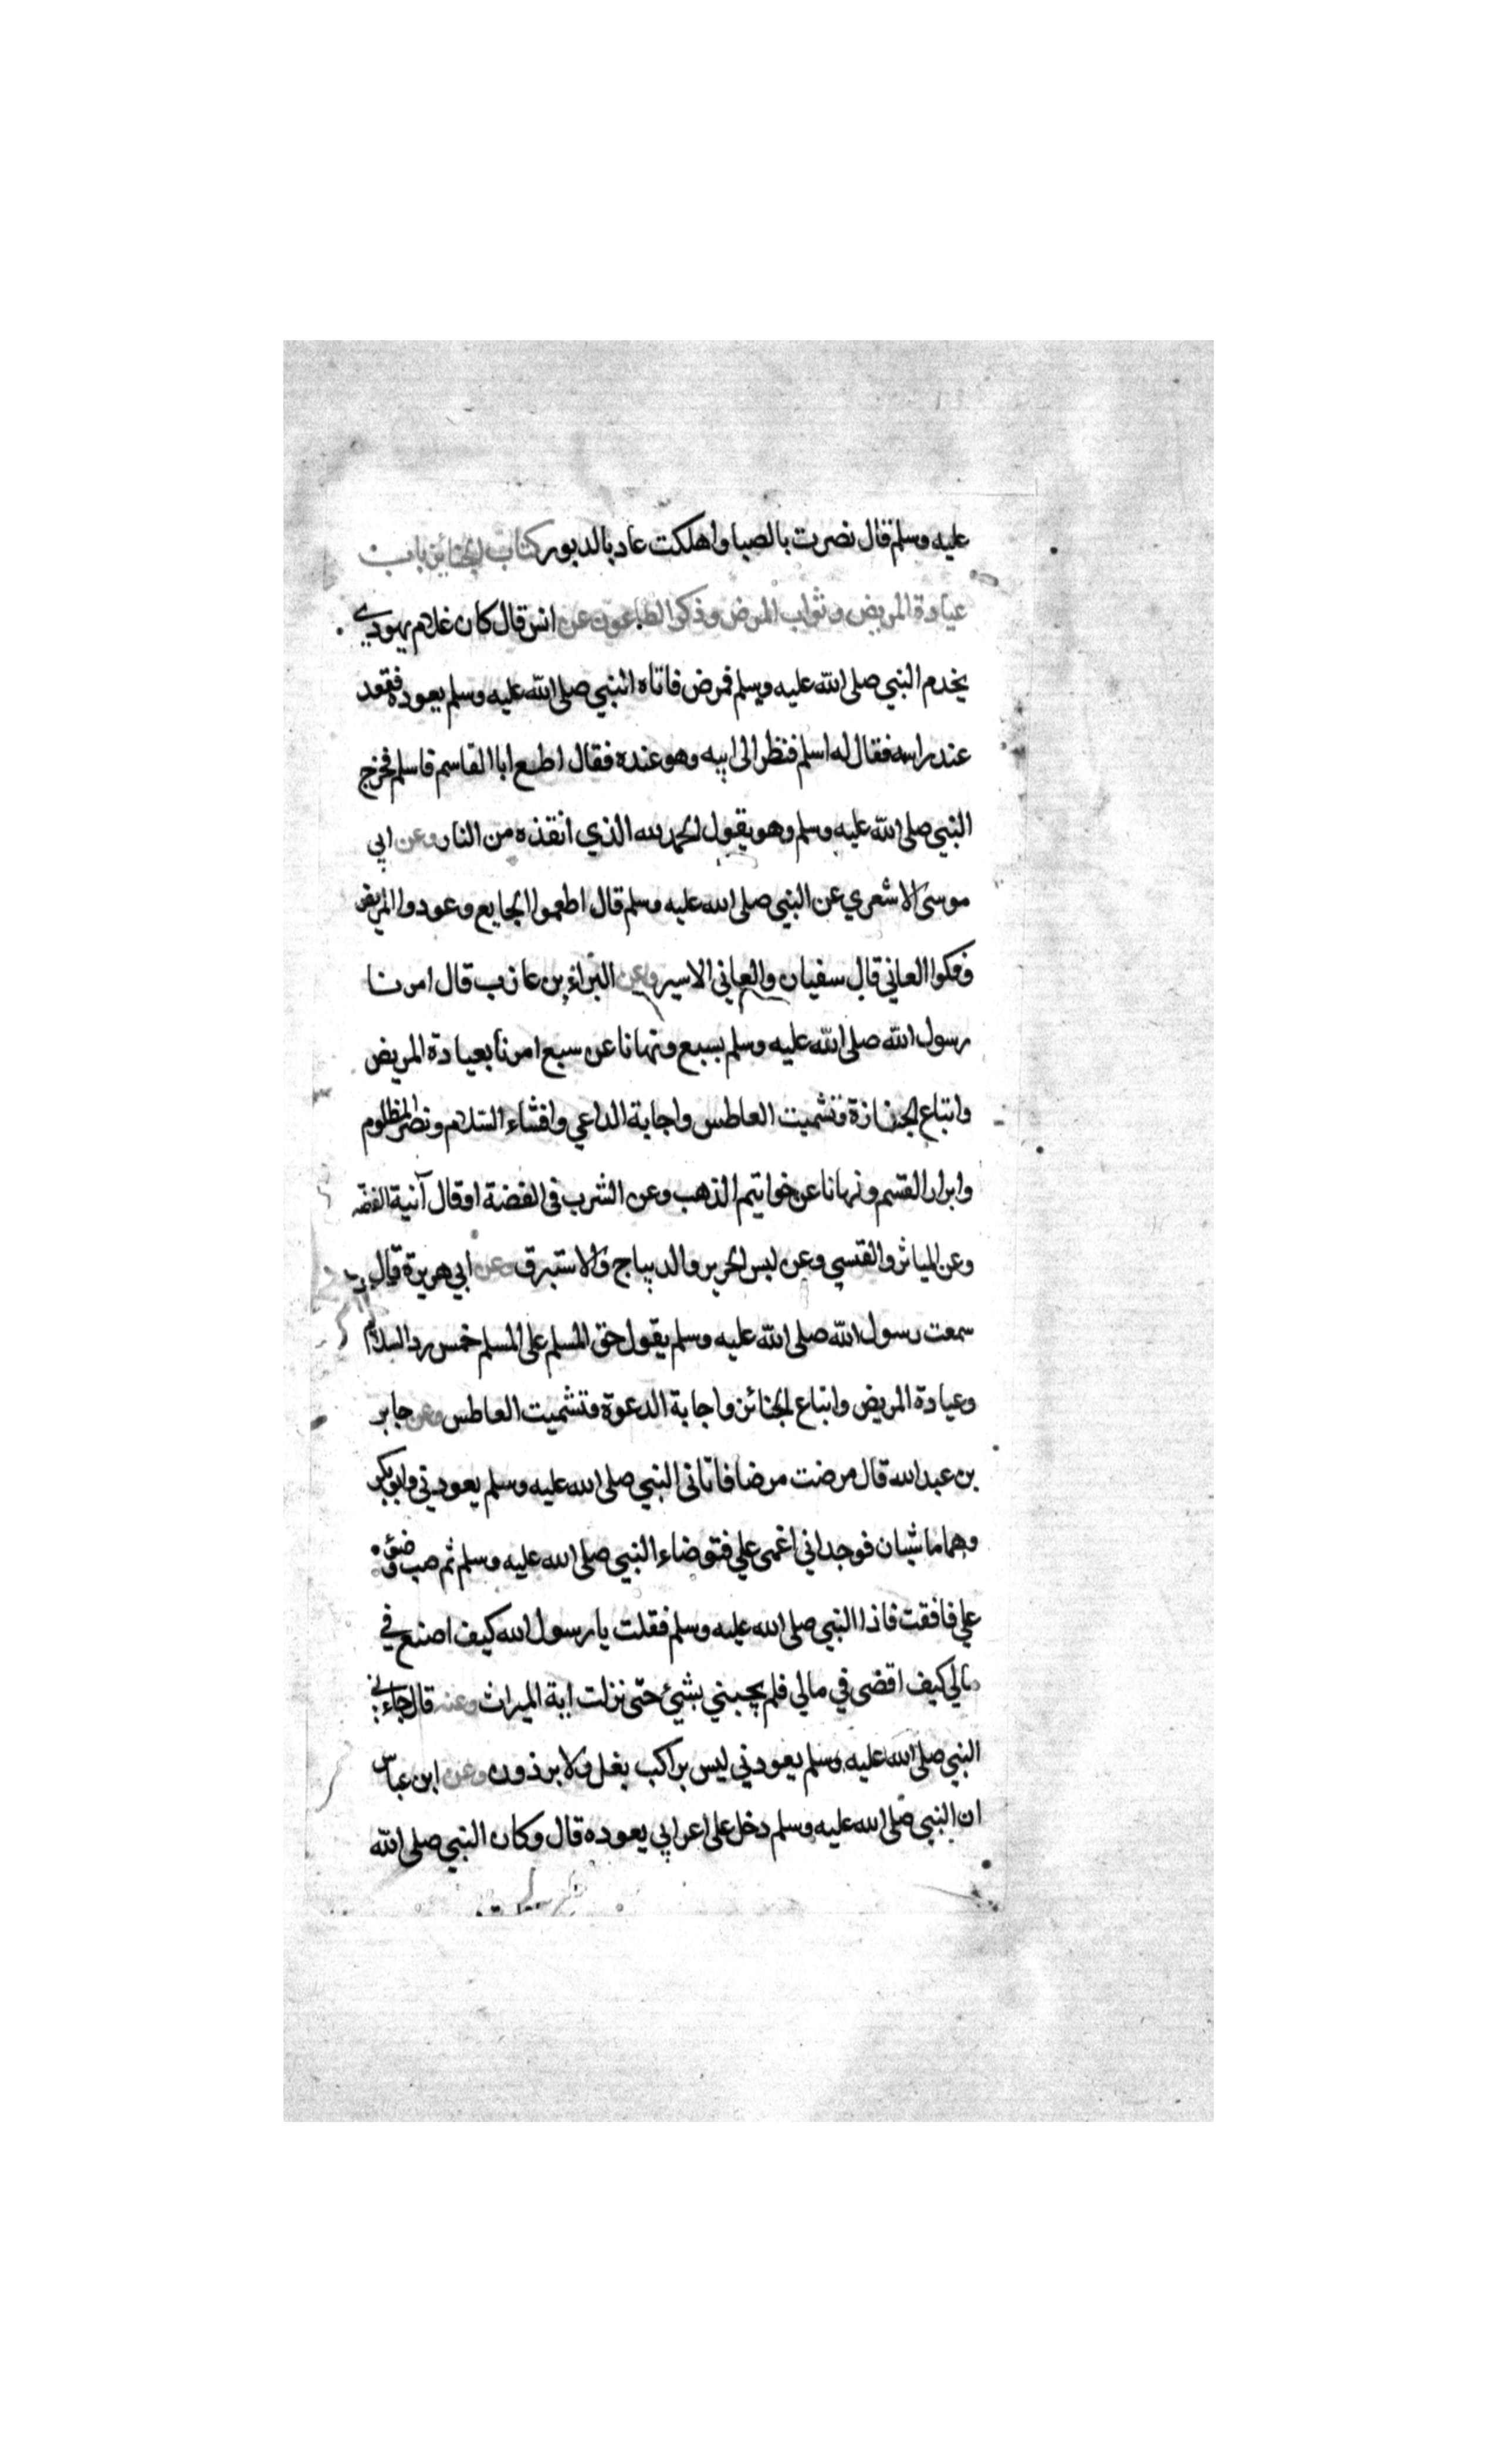 عليه وسلم قال نصرت بالصبا واهلكت عاد بالدبور كتاب الجنايز باب
عيادة المريض وثواب المرض وذكر الطاعون عن انس قال كان غلام يهودي
يخدم النبي صلى الله عليه وسلم فمرض فاتاه النبي صلى الله عليه وسلم يعوده فقعد
عند راسه فقال له اسلم فنظر الى ابيه وهو عنده فقال اطع ابا القاسم فاسلم فخرج
النبي صلى الله عليه وسلم وهو يقول الحمد لله الذي انقذه من النار وعن ابي
موسى الاشعري عن النبي صلى الله عليه وسلم قال اطعموا الجايع وعودوا المريض
وفكوا العاني قال سفيان والعاني الاسير وعن البراء بن عازب قال امرنا
رسول الله صلى الله عليه وسلم بسبع ونهانا عن سبع امرنا بعيادة المريض
واتباع الجنازة وتشميت العاطس واجابة الداعي وافشاء السلام ونصر المظلوم
وابرار القسم ونهانا عن خواتيم الذهب وعن الشرب في الفضة او قال آنية الفضة
وعن المياثر والقسي وعن لبس الحرير والديباج والاستبرق وعن ابي هريرة قال
سمعت رسول الله صلى الله عليه وسلم يقول حق المسلم على المسلم خمس رد السلام
وعيادة المريض واتباع الجنائز واجابة الدعوة وتشميت العاطس وعن جابر
بن عبد الله قال مرضت مرضا فاتانى النبي صلى الله عليه وسلم يعودني وابوبكر
وهما ماشيان فوجداني اغمى علي فتوضاء النبي صلى الله عليه وسلم ثم صب وضوئه
علي فافقت فاذا النبي صلى الله عليه وسلم فقلت يا رسول الله كيف اصنع في
مالي كيف اقضى في مالي فلم يجبني بشيئ حتى نزلت اية الميراث وعنه قال جاءني
النبي صلى الله عليه وسلم يعودني ليس براكب بغل ولا برذون وعن ابن عباس
ان النبي صلى الله عليه وسلم دخل على اعرابي يعوده قال وكان النبي صلى الله